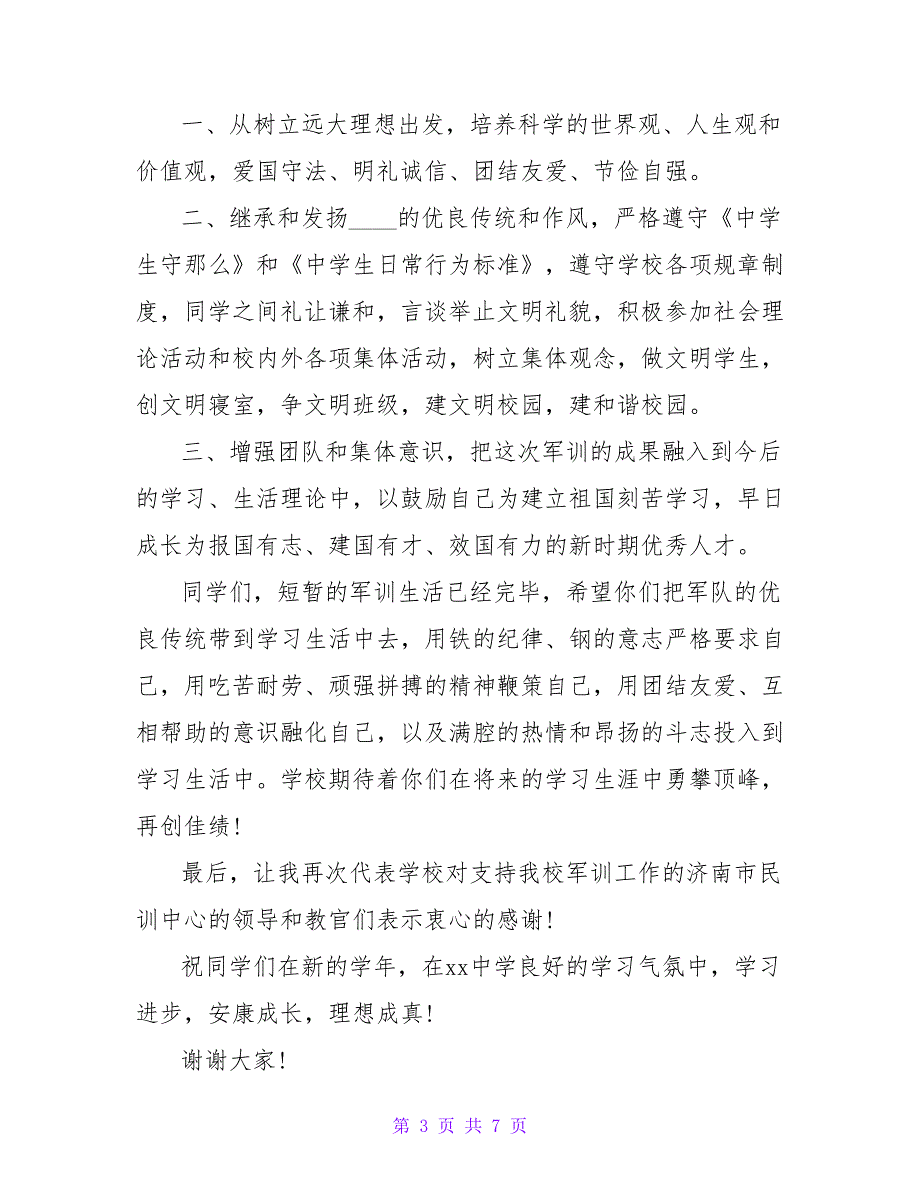 一、从树立远大理想出发，培养科学的世界观、人生观和
价值观，爱国守法、明礼诚信、团结友爱、节俭自强。
二、继承和发扬____的优良传统和作风，严格遵守《中学
生守那么》和《中学生日常行为标准》，遵守学校各项规章制
度，同学之间礼让谦和，言谈举止文明礼貌，积极参加社会理
论活动和校内外各项集体活动，树立集体观念，做文明学生，
创文明寝室，争文明班级，建文明校园，建和谐校园。
三、增强团队和集体意识，把这次军训的成果融入到今后
的学习、生活理论中，以鼓励自己为建立祖国刻苦学习，早日
成长为报国有志、建国有才、效国有力的新时期优秀人才。
同学们，短暂的军训生活已经完毕，希望你们把军队的优
良传统带到学习生活中去，用铁的纪律、钢的意志严格要求自
己，用吃苦耐劳、顽强拼搏的精神鞭策自己，用团结友爱、互
相帮助的意识融化自己，以及满腔的热情和昂扬的斗志投入到
学习生活中。学校期待着你们在将来的学习生涯中勇攀顶峰，
再创佳绩!
最后，让我再次代表学校对支持我校军训工作的济南市民
训中心的领导和教官们表示衷心的感谢!
祝同学们在新的学年，在xx中学良好的学习气氛中，学习
进步，安康成长，理想成真!
谢谢大家!
第 3 页 共 7 页